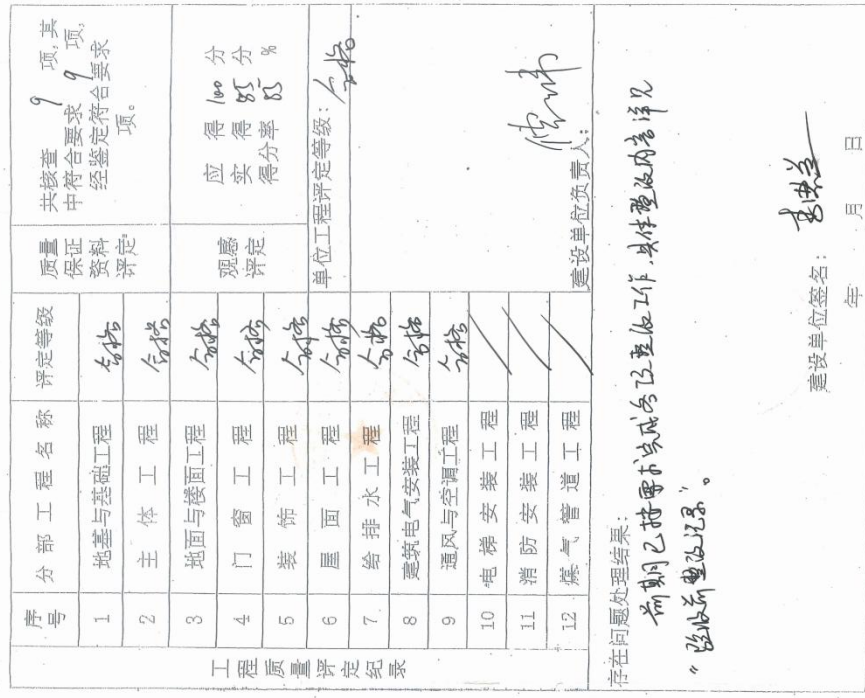 工程质量评定纪录
序号 分部工程名称 评定等级
1 地基与基础工程 合格
2 主体工程 合格
3 地面与楼面工程 合格
4 门窗工程 合格
5 装饰工程 合格
6 屋面工程 合格
7 给排水工程 合格
8 建筑电气安装工程 合格
9 通风与空调工程 合格
10 电梯安装工程
11 消防安装工程
12 煤气管道工程
质量
保证
资料
评定
共核查 9 项,其
中符合要求 9 项,
经鉴定符合要求
项。
观感
评定
应得 100 分
实得 85 分
得分率 85 %
单位工程评定等级: 合格
建设单位负责人:
存在问题处理结果:
前期已按要求完成各项整改工作,具体整改内容详见
“验收前整改记录”。
建设单位签名:
年 月 日